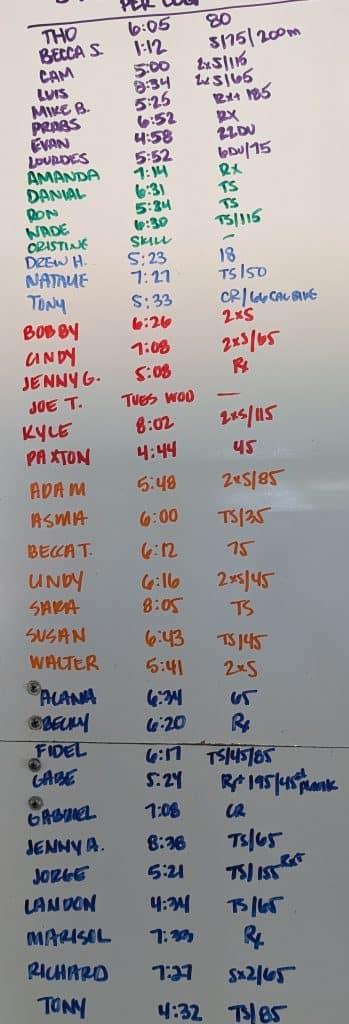 THO 6:05 80
BECCA S. 1:12 S/75/200m
CAM 5:00 2xS/115
LUIS 8:34 2xS/65
MIKE B. 5:25 Rx+ 185
PRABS 6:52 RX
EVAN 4:58 22DU
LOURDES 5:52 6DU/75
AMANDA 7:14 Rx
DANIAL 6:31 TS
RON 5:34 TS
WADE 6:30 TS/115
CRISTINE SKILL —
DREW H. 5:23 18
NATALIE 7:27 TS/50
TONY 5:33 CR/66 CAL BIKE
BOBBY 6:26 2xS
CINDY 7:08 2xS/65
JENNY G. 5:08 Rx
JOE T. TUES WOD —
KYLE 8:02 2xS/115
PAXTON 4:44 45
ADAM 5:48 2xS/85
ASMA 6:00 TS/35
BECCA T. 6:12 75
LINDY 6:16 2xS/45
SARA 8:05 TS
SUSAN 6:43 TS/45
WALTER 5:41 2xS
ALANA 6:34 65
BECKY 6:20 Rx
FIDEL 6:17 TS/45/85
GABE 5:24 Rx+ 195/45# PLANK
GABRIEL 7:08 CR
JENNY A. 8:38 TS/65
JORGE 5:21 TS/155
LANDON 4:34 TS/65
MARISOL 7:33 Rx
RICHARD 7:27 Sx2/65
TONY 4:32 TS/85